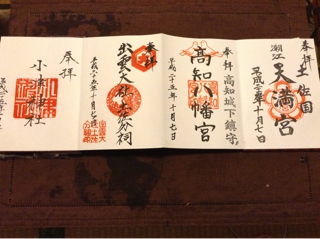 奉拝
土佐国
潮江天満宮
平成二十五年十月七日
奉拝
高知城下鎮守
高知八幡宮
平成二十五年十月七日
奉拝
出雲大社土佐分祠
平成二十五年十月七日
奉拝
小津神社